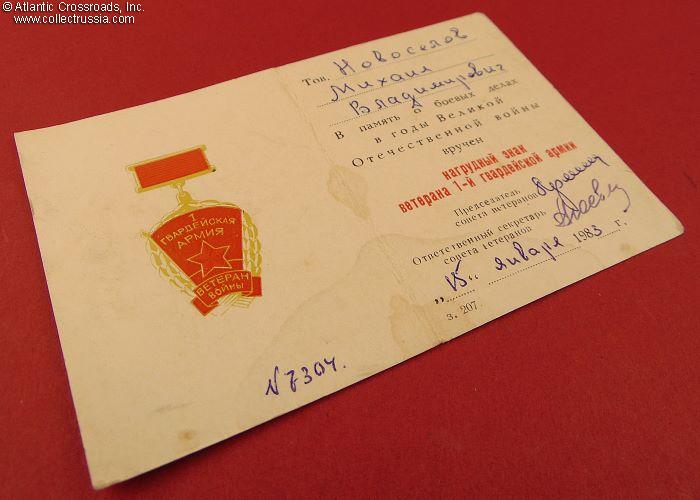 © Atlantic Crossroads, Inc.
www.collectrussia.com
1
ГВАРДЕЙСКАЯ
АРМИЯ
ВЕТЕРАН
ВОЙНЫ
N 7304.
Тов. Новоселов
Михаил
Владимирович
В память о боевых делах
в годы Великой
Отечественной войны
вручен
нагрудный знак
ветерана 1-й гвардейской армии
Председатель
совета ветеранов
Ответственный секретарь
совета ветеранов
„15“ января 1983 г.
з. 207